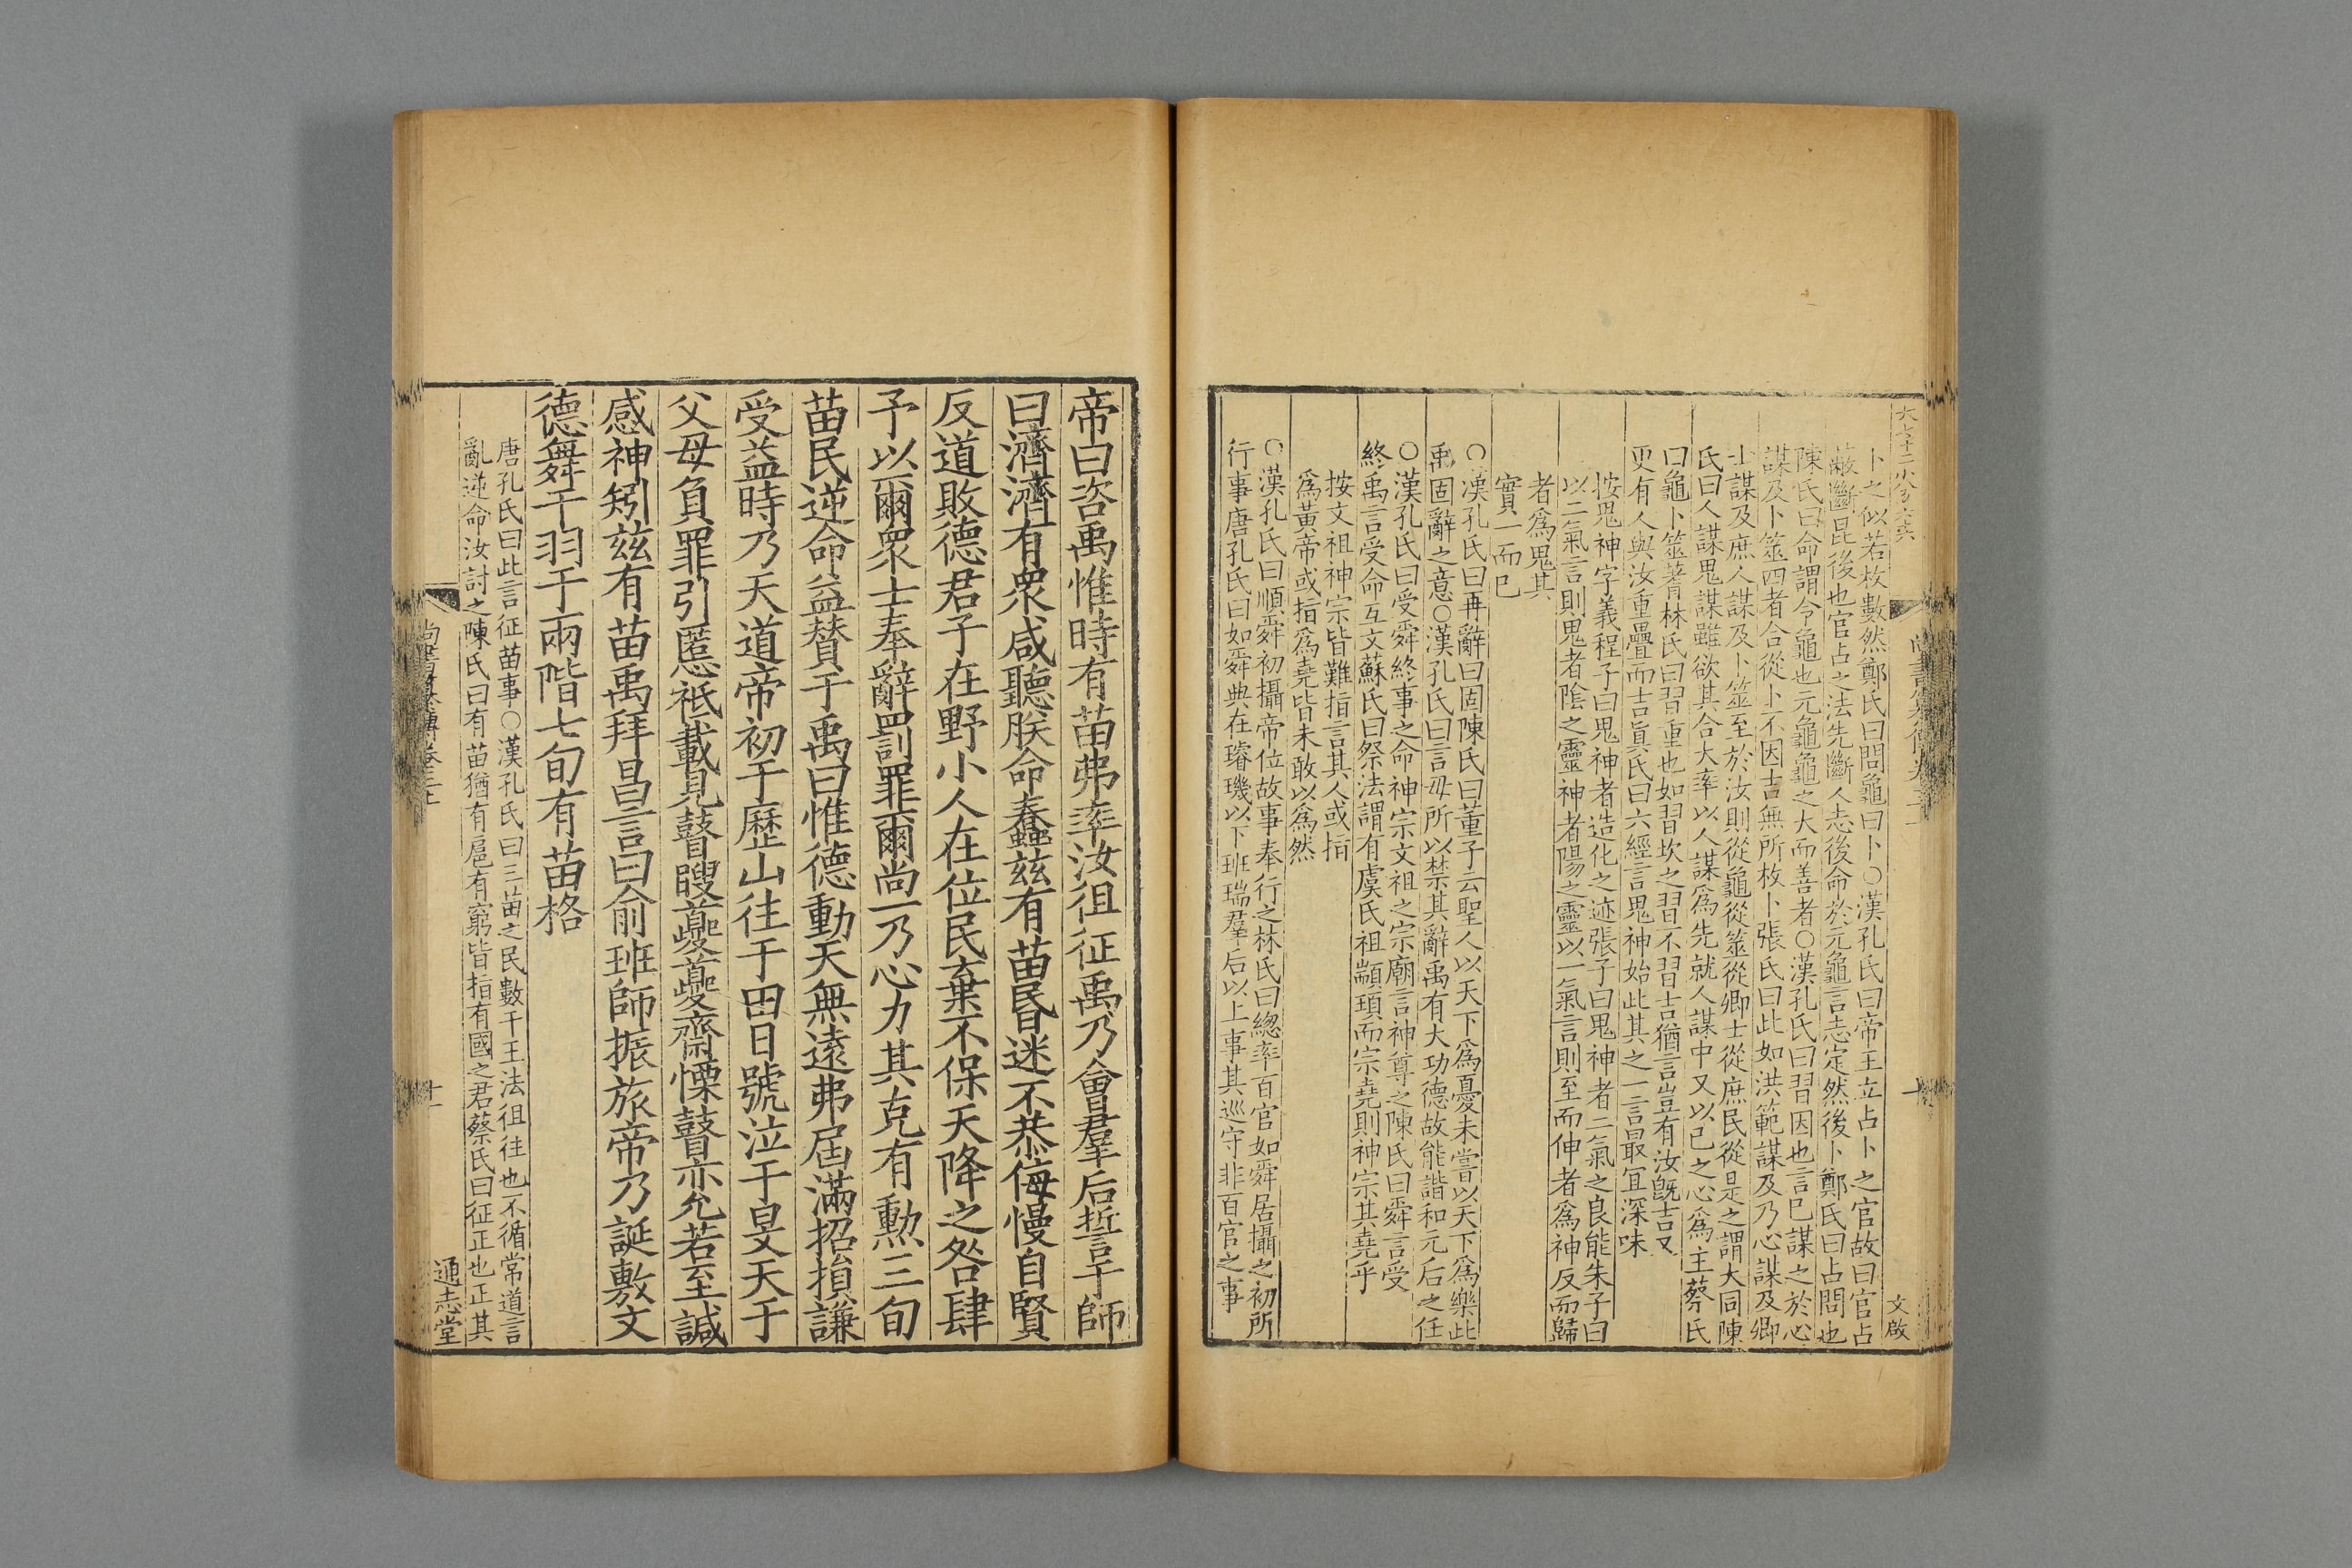 卜之似若枚數然鄭氏曰問龜曰卜○漢孔氏曰帝王立占卜之官故曰官占
蔽斷昆後也官占之法先斷人志後命於元龜言志定然後卜鄭氏曰占問也
陳氏曰命謂令龜也元龜龜之大而善者○漢孔氏曰習因也言已謀之於心
謀及卜筮四者合從卜不因吉無所枚卜張氏曰此如洪範謀及乃心謀及卿
士謀及庶人謀及卜筮至於汝則從龜從筮從卿士從庶民從是之謂大同陳
氏曰人謀鬼謀雖欲其合大率以人謀爲先就人謀中又以已之心爲主蔡氏
曰龜卜筮蓍林氏曰習重也如習坎之習不習吉猶言豈有汝旣吉又
更有人與汝重疊而吉眞氏曰六經言鬼神始此其之一言最宜深味
按鬼神字義程子曰鬼神者造化之迹張子曰鬼神者二氣之良能朱子曰
以二氣言則鬼者陰之靈神者陽之靈以一氣言則至而伸者爲神反而歸
者爲鬼其
實一而已
○漢孔氏曰再辭曰固陳氏曰董子云聖人以天下爲憂未嘗以天下爲樂此
禹固辭之意○漢孔氏曰言毋所以禁其辭禹有大功德故能諧和元后之任
○漢孔氏曰受舜終事之命神宗文祖之宗廟言神尊之陳氏曰舜言受
終禹言受命互文蘇氏曰祭法謂有虞氏祖顓頊而宗堯則神宗其堯乎
按文祖神宗皆難指言其人或指
爲黃帝或指爲堯皆未敢以爲然
○漢孔氏曰順舜初攝帝位故事奉行之林氏曰總率百官如舜居攝之初所
行事唐孔氏曰如舜典在璿璣以下班瑞羣后以上事其巡守非百官之事
文啟
帝曰咨禹惟時有苗弗率汝徂征禹乃會羣后誓于師
曰濟濟有衆咸聽朕命蠢茲有苗昏迷不恭侮慢自賢
反道敗德君子在野小人在位民棄不保天降之咎肆
予以爾衆士奉辭罰罪爾尚一乃心力其克有勲三旬
苗民逆命益賛于禹曰惟德動天無遠弗屆滿招損謙
受益時乃天道帝初于歷山往于田日號泣于旻天于
父母負罪引慝祇載見瞽瞍夔夔齋慄瞽亦允若至諴
感神矧茲有苗禹拜昌言曰俞班師振旅帝乃誕敷文
德舞干羽于兩階七旬有苗格
唐孔氏曰此言征苗事○漢孔氏曰三苗之民數干王法徂往也不循常道言
亂逆命汝討之陳氏曰有苗猶有扈有窮皆指有國之君蔡氏曰征正也正其
十一
通志堂